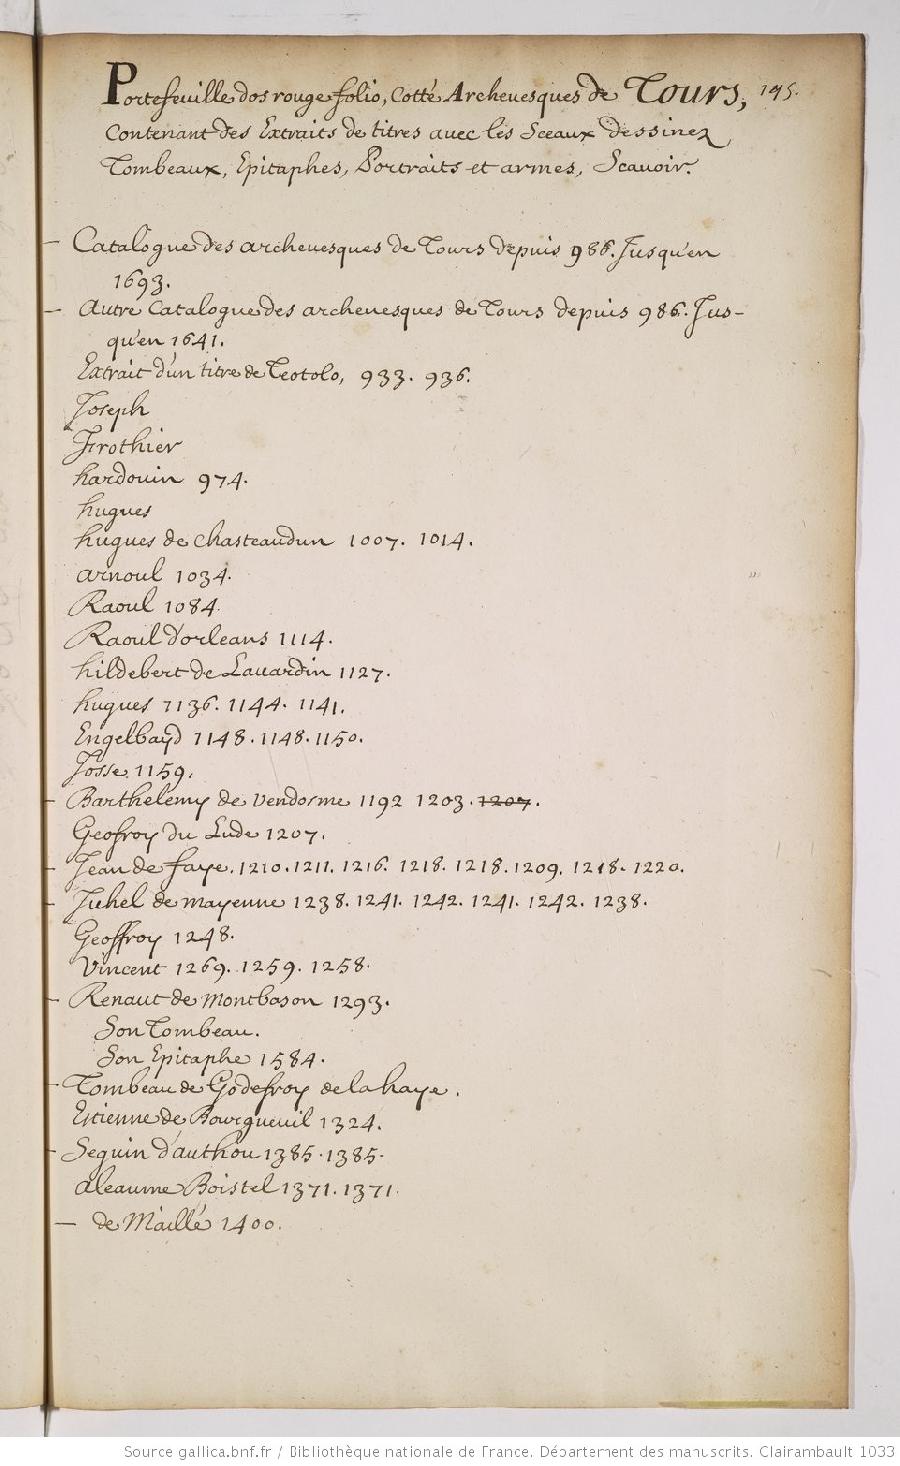 Portefeuille dos rouge folio, Cotté Archeuesques de Tours, 195.
Contenant des Extraits de titres auec les Sceaux dessinez,
Tombeaux, Epitaphes, Portraits et armes, Scauoir.
— Catalogue des archeuesques de Tours depuis 986. Jusqu'en
1693.
— Autre Catalogue des archeuesques de Tours depuis 986. Jus-
qu'en 1641.
Extrait d'un titre de Teotolo, 933. 936.
Joseph
Frothier
hardouin 974.
hugues
hugues de chasteaudun 1007. 1014.
arnoul 1034.
Raoul 1084.
Raoul d'orleans 1114.
hildebert de Lauardin 1127.
hugues 1136. 1144. 1141.
Engelbayd 1148. 1148. 1150.
Josse 1159.
— Barthelemy de Vendosme 1192 1203. 1207.
Geofroy du Lude 1207.
— Jean de faye. 1210. 1211. 1216. 1218. 1218. 1209. 1218. 1220.
— Juhel de mayenne 1238. 1241. 1242. 1241. 1242. 1238.
Geoffroy 1248.
Vincent 1269. 1259. 1258.
— Renaut de Montbason 1293.
Son Tombeau.
Son Epitaphe 1584.
— Tombeau de Godefroy de la haye.
Estienne de Bourgueuil 1324.
— Seguin d'authou 1385. 1385.
aleaume Boistel 1371. 1371.
— de Maillé 1400.
Source gallica.bnf.fr / Bibliothèque nationale de France. Département des manuscrits. Clairambault 1033